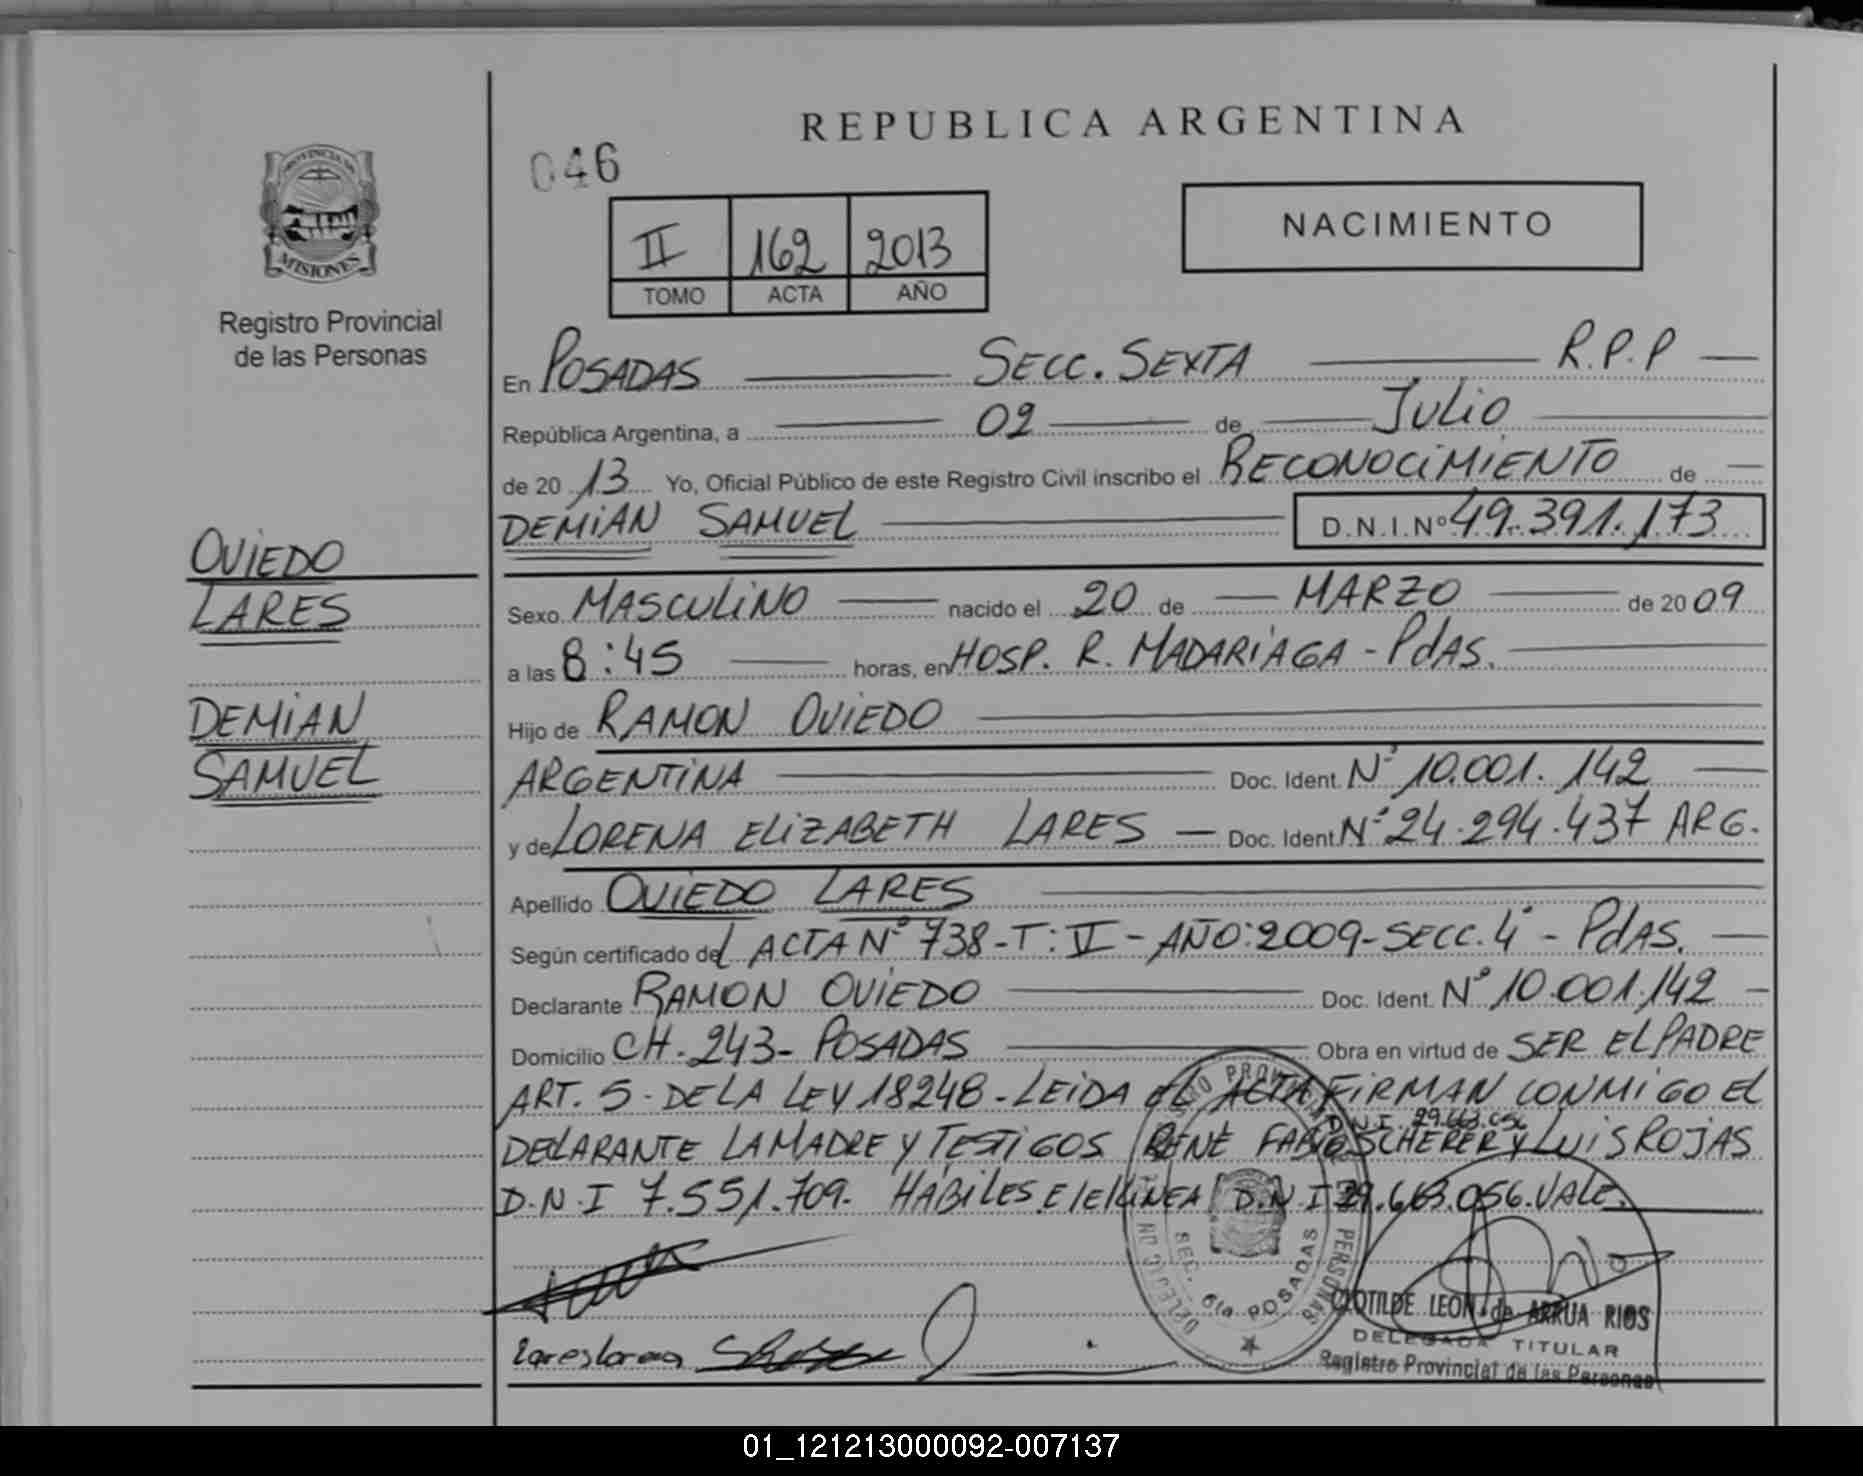 REPUBLICA ARGENTINA
046
PROVINCIA DE
MISIONES
Registro Provincial
de las Personas
NACIMIENTO
II 162 2013
TOMO ACTA AÑO
En POSADAS SECC. SEXTA R.P.P
República Argentina, a 02 de JULIO
de 2013 Yo, Oficial Público de este Registro Civil inscribo el RECONOCIMIENTO de
DEMIAN SAMUEL D.N.I.Nº 49.391.173
OVIEDO
LARES
DEMIAN
SAMUEL
Sexo MASCULINO nacido el 20 de MARZO de 2009
a las 8:45 horas, en HOSP. R. MADARIAGA - PdAS.
Hijo de RAMON OVIEDO
ARGENTINA Doc. Ident. Nº 10.001.142
y de LORENA ELIZABETH LARES Doc. Ident. Nº 24.294.437 ARG.
Apellido OVIEDO LARES
Según certificado del ACTA Nº 738-T: VI - AÑO: 2009-SECC. 4ª - PdAS.
Declarante RAMON OVIEDO Doc. Ident. Nº 10.001.142
Domicilio CH. 243- POSADAS Obra en virtud de SER EL PADRE
ART. 5 - DE LA LEY 18248 - LEIDA EL ACTA FIRMAN CONMIGO EL
D.N.I. 29.663.056
DECLARANTE LA MADRE Y TESTIGOS RENÉ FABIO SCHERER Y LUIS ROJAS
D.N.I 7.551.709. HÁBILES E/ELINEA D.N.I 29.663.056. VALE.
SEC. 6ta POSADAS
CLOTILDE LEON de ARRUA RIOS
DELEGADA TITULAR
Registro Provincial de las Personas
01_121213000092-007137